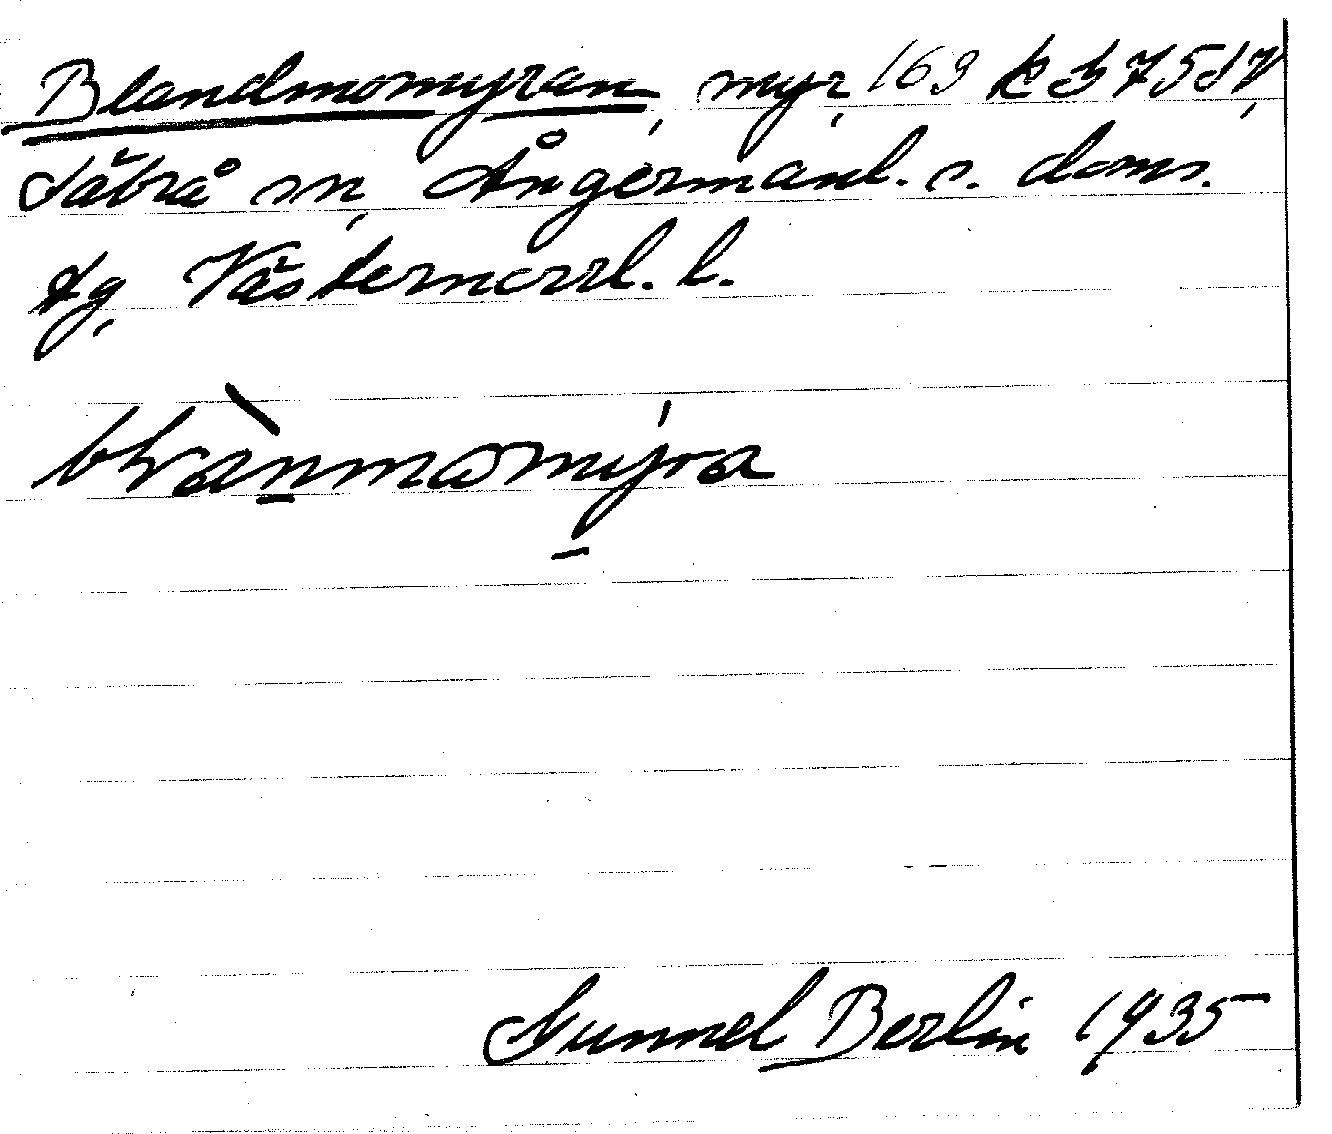 Blandmomyran, myr, 169 k b 7587,
Säbrå sn, Ångermanl. s. doms.
tg, Västernorrl. l.
bḷranmomyra
Gunnel Berlin 1935